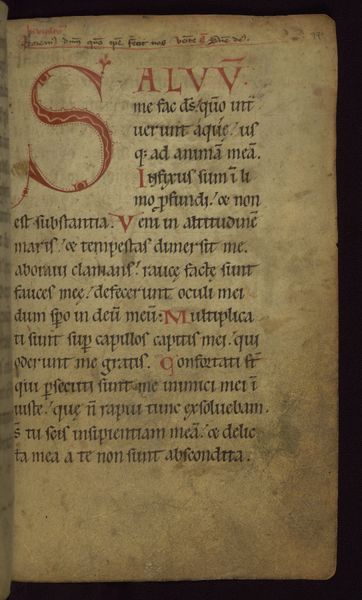 SALVV̄
me fac d̄s / qūo int
uerunt aque / us
q; ad animā meā.
Infixus sum i li
mo p̄fundi / & non
est substantia. Veni in altitudinē
maris / & tempestas dimersit me.
aboraui clamans / rauce facte sunt
fauces mee / defecerunt oculi mei
dum sp̄o in deū meū: Multiplica
ti sunt sup̄ capillos capitis mei / qui
oderunt me gratis. Confortati sт̄
qui persecuti sunt me inimici mei ī
iuste / que n̄ rapui tunc exsoluebam.
s̄ tu scis insipientiam meā / & delic
ta mea a te non sunt abscondita.